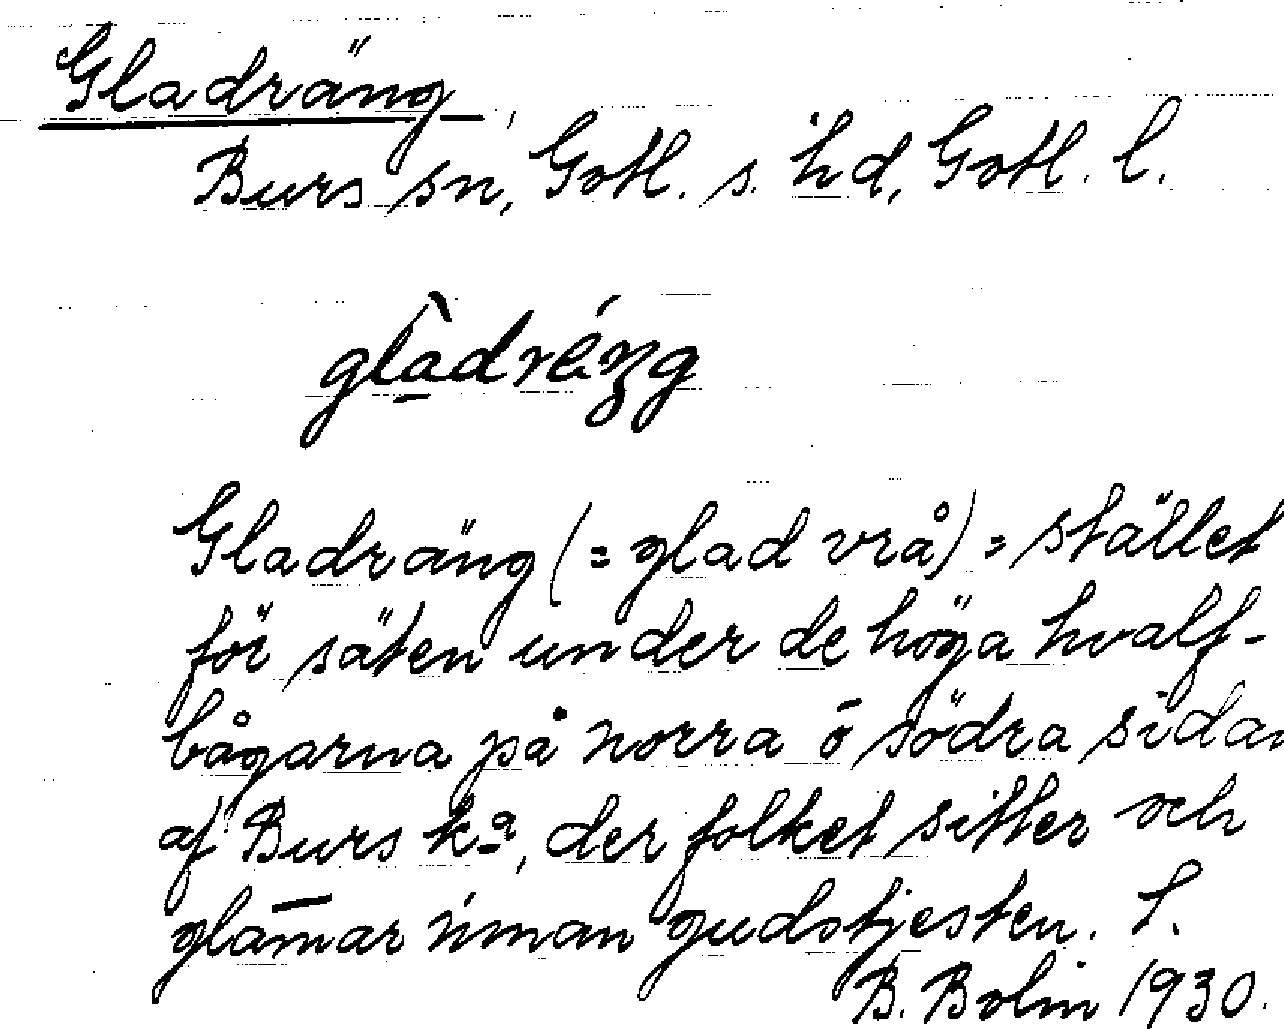 Gladräng,
Burs sn, Gotl. s. hd, Gotl. l.
glàdréŋg
Gladräng (= glad vrå) = stället
för säten under de höga hvalf-
bågarna på norra ō södra sidan
af Burs k:a, der folket sitter och
glam̄ar innan gudstjesten. S.
B. Bolin 1930.